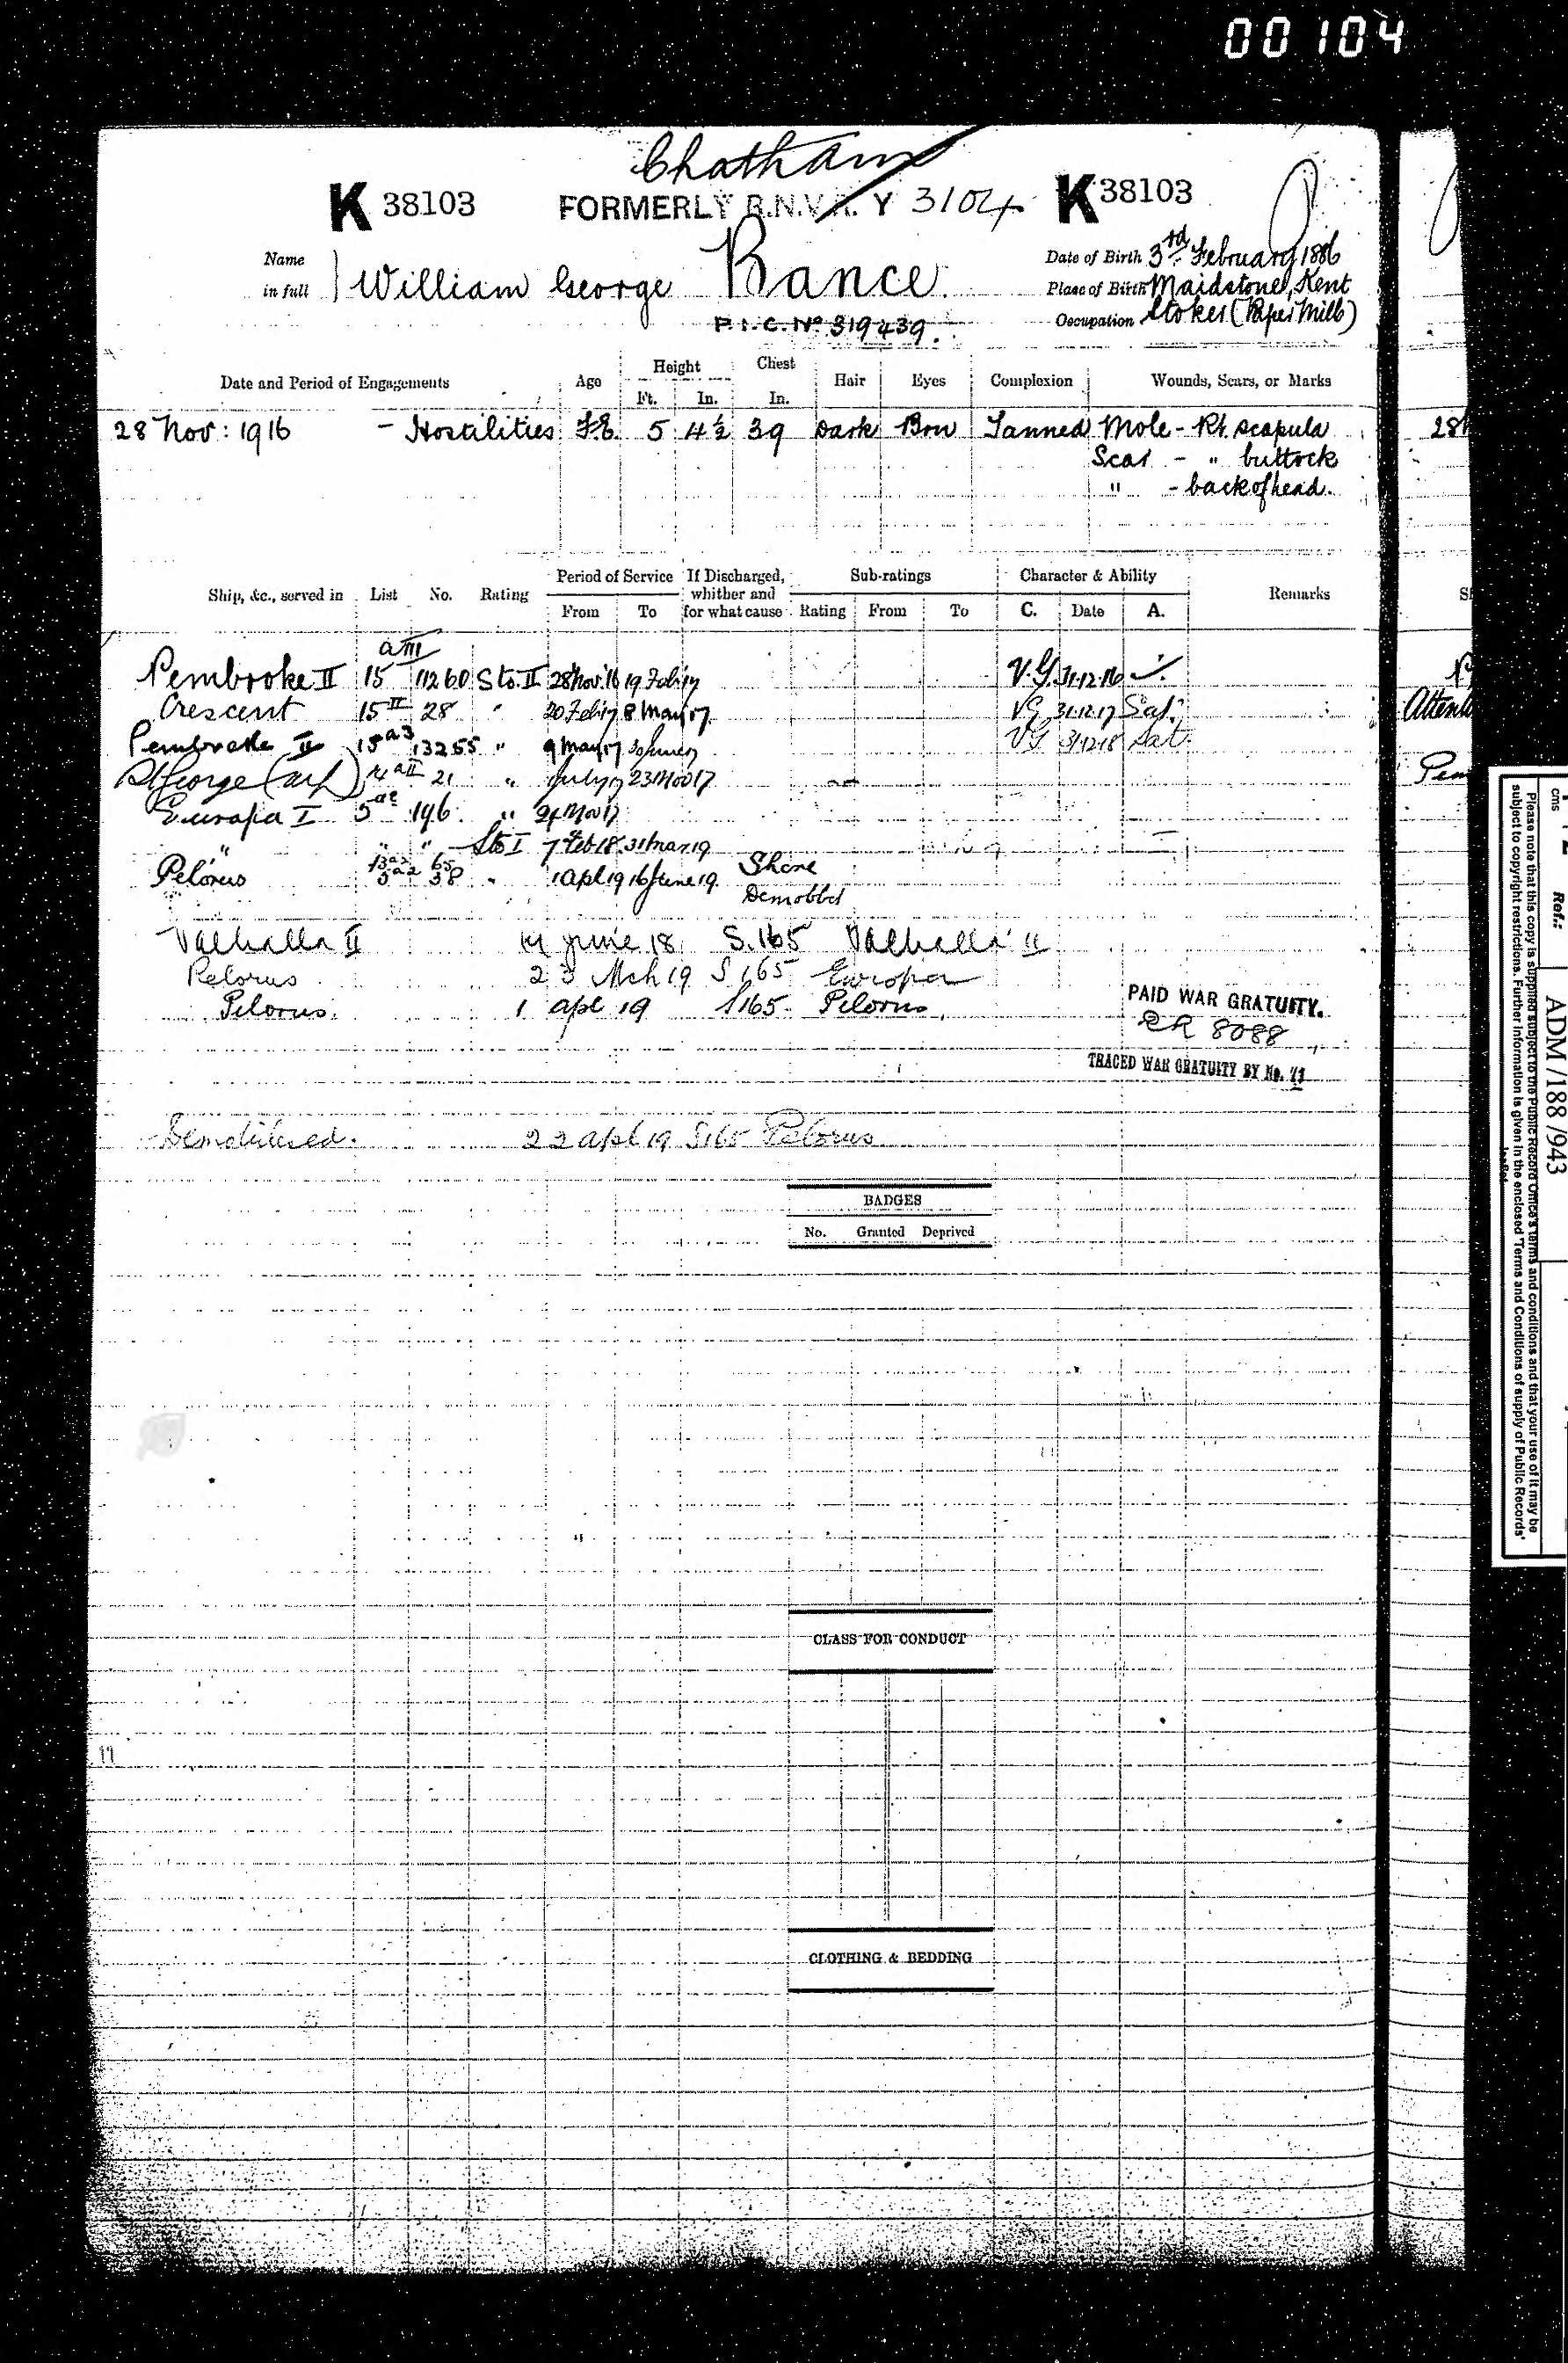 00104
Chatham
K 38103 FORMERLY R.N.V.R. Y 3104 K 38103
Name in full William George Rance
Date of Birth 3rd February 1886
Place of Birth Maidstone, Kent
Occupation Stoker (Paper Mill)
P.I.C. No 319439.
Date and Period of Engagements Age Height Ft. In. Chest In. Hair Eyes Complexion Wounds, Scars, or Marks
28 Nov: 1916 - Hostilities F.E. 5 4½ 39 Dark Brn Tanned Mole - Rt. scapula 28
Scar - " buttock
" - back of head.
Ship, &c., served in List No. Rating Period of Service From To If Discharged, whither and for what cause Sub-ratings Rating From To Character & Ability C. Date A. Remarks
a III
Pembroke II 15 11260 Sto. II 28 Nov '16 19 Feb 17 V.G. 31.12.16
Crescent 15 II 28 " 20 Feb 17 8 May 17 VG 31.12.17 Sat.
Pembroke II 15 a3 13255 " 9 May 17 30 June 17 VG 31.12.18 Sat.
St George 14 a II 21 " 1 July 17 23 Nov 17
Europa I 5 a2 196 " 24 Nov 17
" " " Sto I 7 Feb 18 31 Mar 19
Pelorus 58 " 1 Apl 19 16 June 19 Shore
Demobbed
Valhalla II 14 June 18 S.165 Valhalla II
Pelorus 23 Mch 19 S165 Europa
Pelorus 1 Apl 19 S165 Pelorus
PAID WAR GRATUITY.
8088
TRACED WAR GRATUITY BY No.
Demobilised. 22 Apl 19 S165 Pelorus
BADGES
No. Granted Deprived
CLASS FOR CONDUCT
CLOTHING & BEDDING
cms
Ref.:
ADM /188 /943
Please note that this copy is supplied subject to the Public Record Office's terms and conditions and that your use of it may be
subject to copyright restrictions. Further information is given in the enclosed 'Terms and Conditions of supply of Public Records'
leaflet